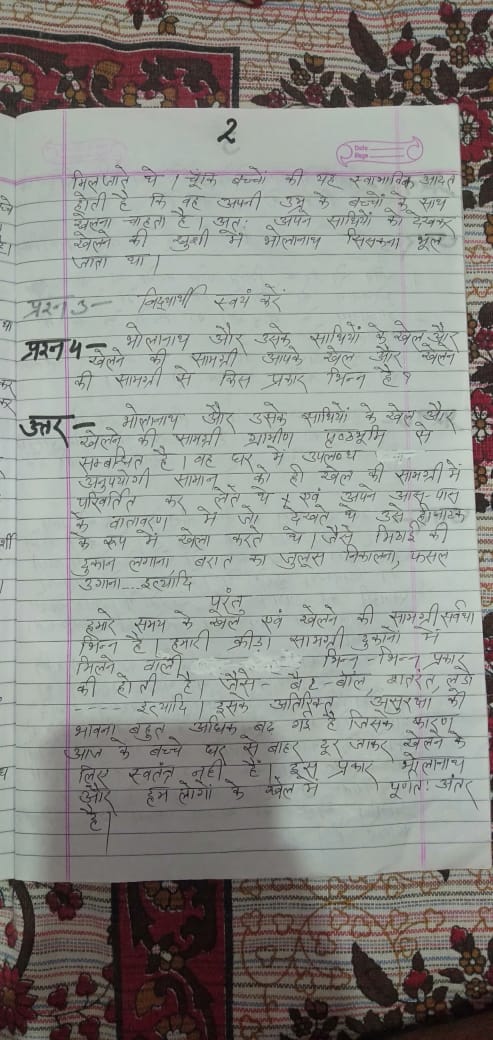 2
Date
Page
मिल जाते थे । चूंकि बच्चों की यह स्वाभाविक आदत
होती है कि वह अपनी उम्र के बच्चों के साथ
खेलना चाहता है। अतः अपने साथियों को देखकर
खेलने की खुशी में भोलानाथ सिसकना भूल
जाता था।
प्रश्न 3 - विद्यार्थी स्वयं करें
प्रश्न 4 - भोलानाथ और उसके साथियों के खेल और
खेलने की सामग्री आपके खेल और खेलने
की सामग्री से किस प्रकार भिन्न है ?
उत्तर - भोलानाथ और उसके साथियों के खेल और
खेलने की सामग्री ग्रामीण पृष्ठभूमि से
सम्बन्धित है। वह घर में उपलब्ध
अनुपयोगी सामान को ही खेल की सामग्री में
परिवर्तित कर लेते थे एवं अपने आस-पास
के वातावरण में जो देखते थे उसे ही नाटक
के रूप में खेला करते थे । जैसे मिठाई की
दुकान लगाना, बरात का जुलूस निकालना, फसल
उगाना... इत्यादि
परंतु
हमारे समय के खेल एवं खेलने की सामग्री सर्वथा
भिन्न है। हमारी क्रीड़ा सामग्री दुकानों में
मिलने वाली भिन्न-भिन्न प्रकार
की होती है। जैसे - बैट-बॉल, लूडो
----- इत्यादि। इसके अतिरिक्त असुरक्षा की
भावना बहुत अधिक बढ़ गई है जिसके कारण
आज के बच्चे घर से बाहर दूर जाकर खेलने के
लिए स्वतंत्र नहीं हैं। इस प्रकार भोलानाथ
और हम लोगों के खेल में पूर्णतः अंतर
है।